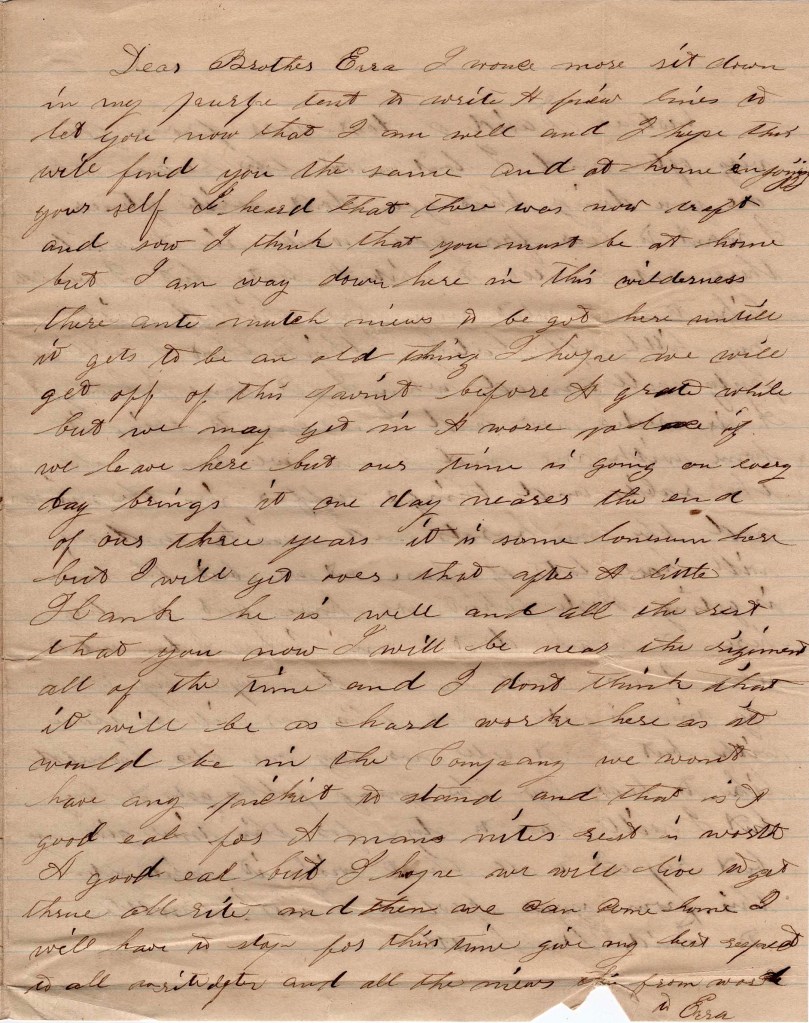 Dear Brother Ezra I wonce more sit down
in my tent to write A fiew lines to
let you now that I am well and I hope this
will find you the same and at home injoying
your self I heard that there was now draft
and sow I think that you must be at home
but I am way down here in this wilderness
there ante mutch niews to be got here untill
it gets to be an old thing I hope we will
get off of this before A grate while
but we may get in A worse place if
we leave here but our time is going on every
day brings it one day nearer the end
of our three years it is some lonesum here
but I will get over that after A little
Hank he is well and all the rest
that you now I will be near the rigiment
all of the time and I dont think that
it will be as hard worke here as it
would be in the Compnay we wont
have any pickit to stand and that is A
good eal for A mans nites rest is worth
A good eal but I hope we will live to get
threw all rite and then we can come home I
will have to stop for this time give my best respect
to all write after and all the niews from
to Ezra